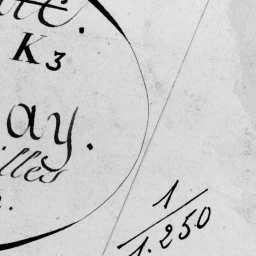 K3
ay.
illes
1
1.250